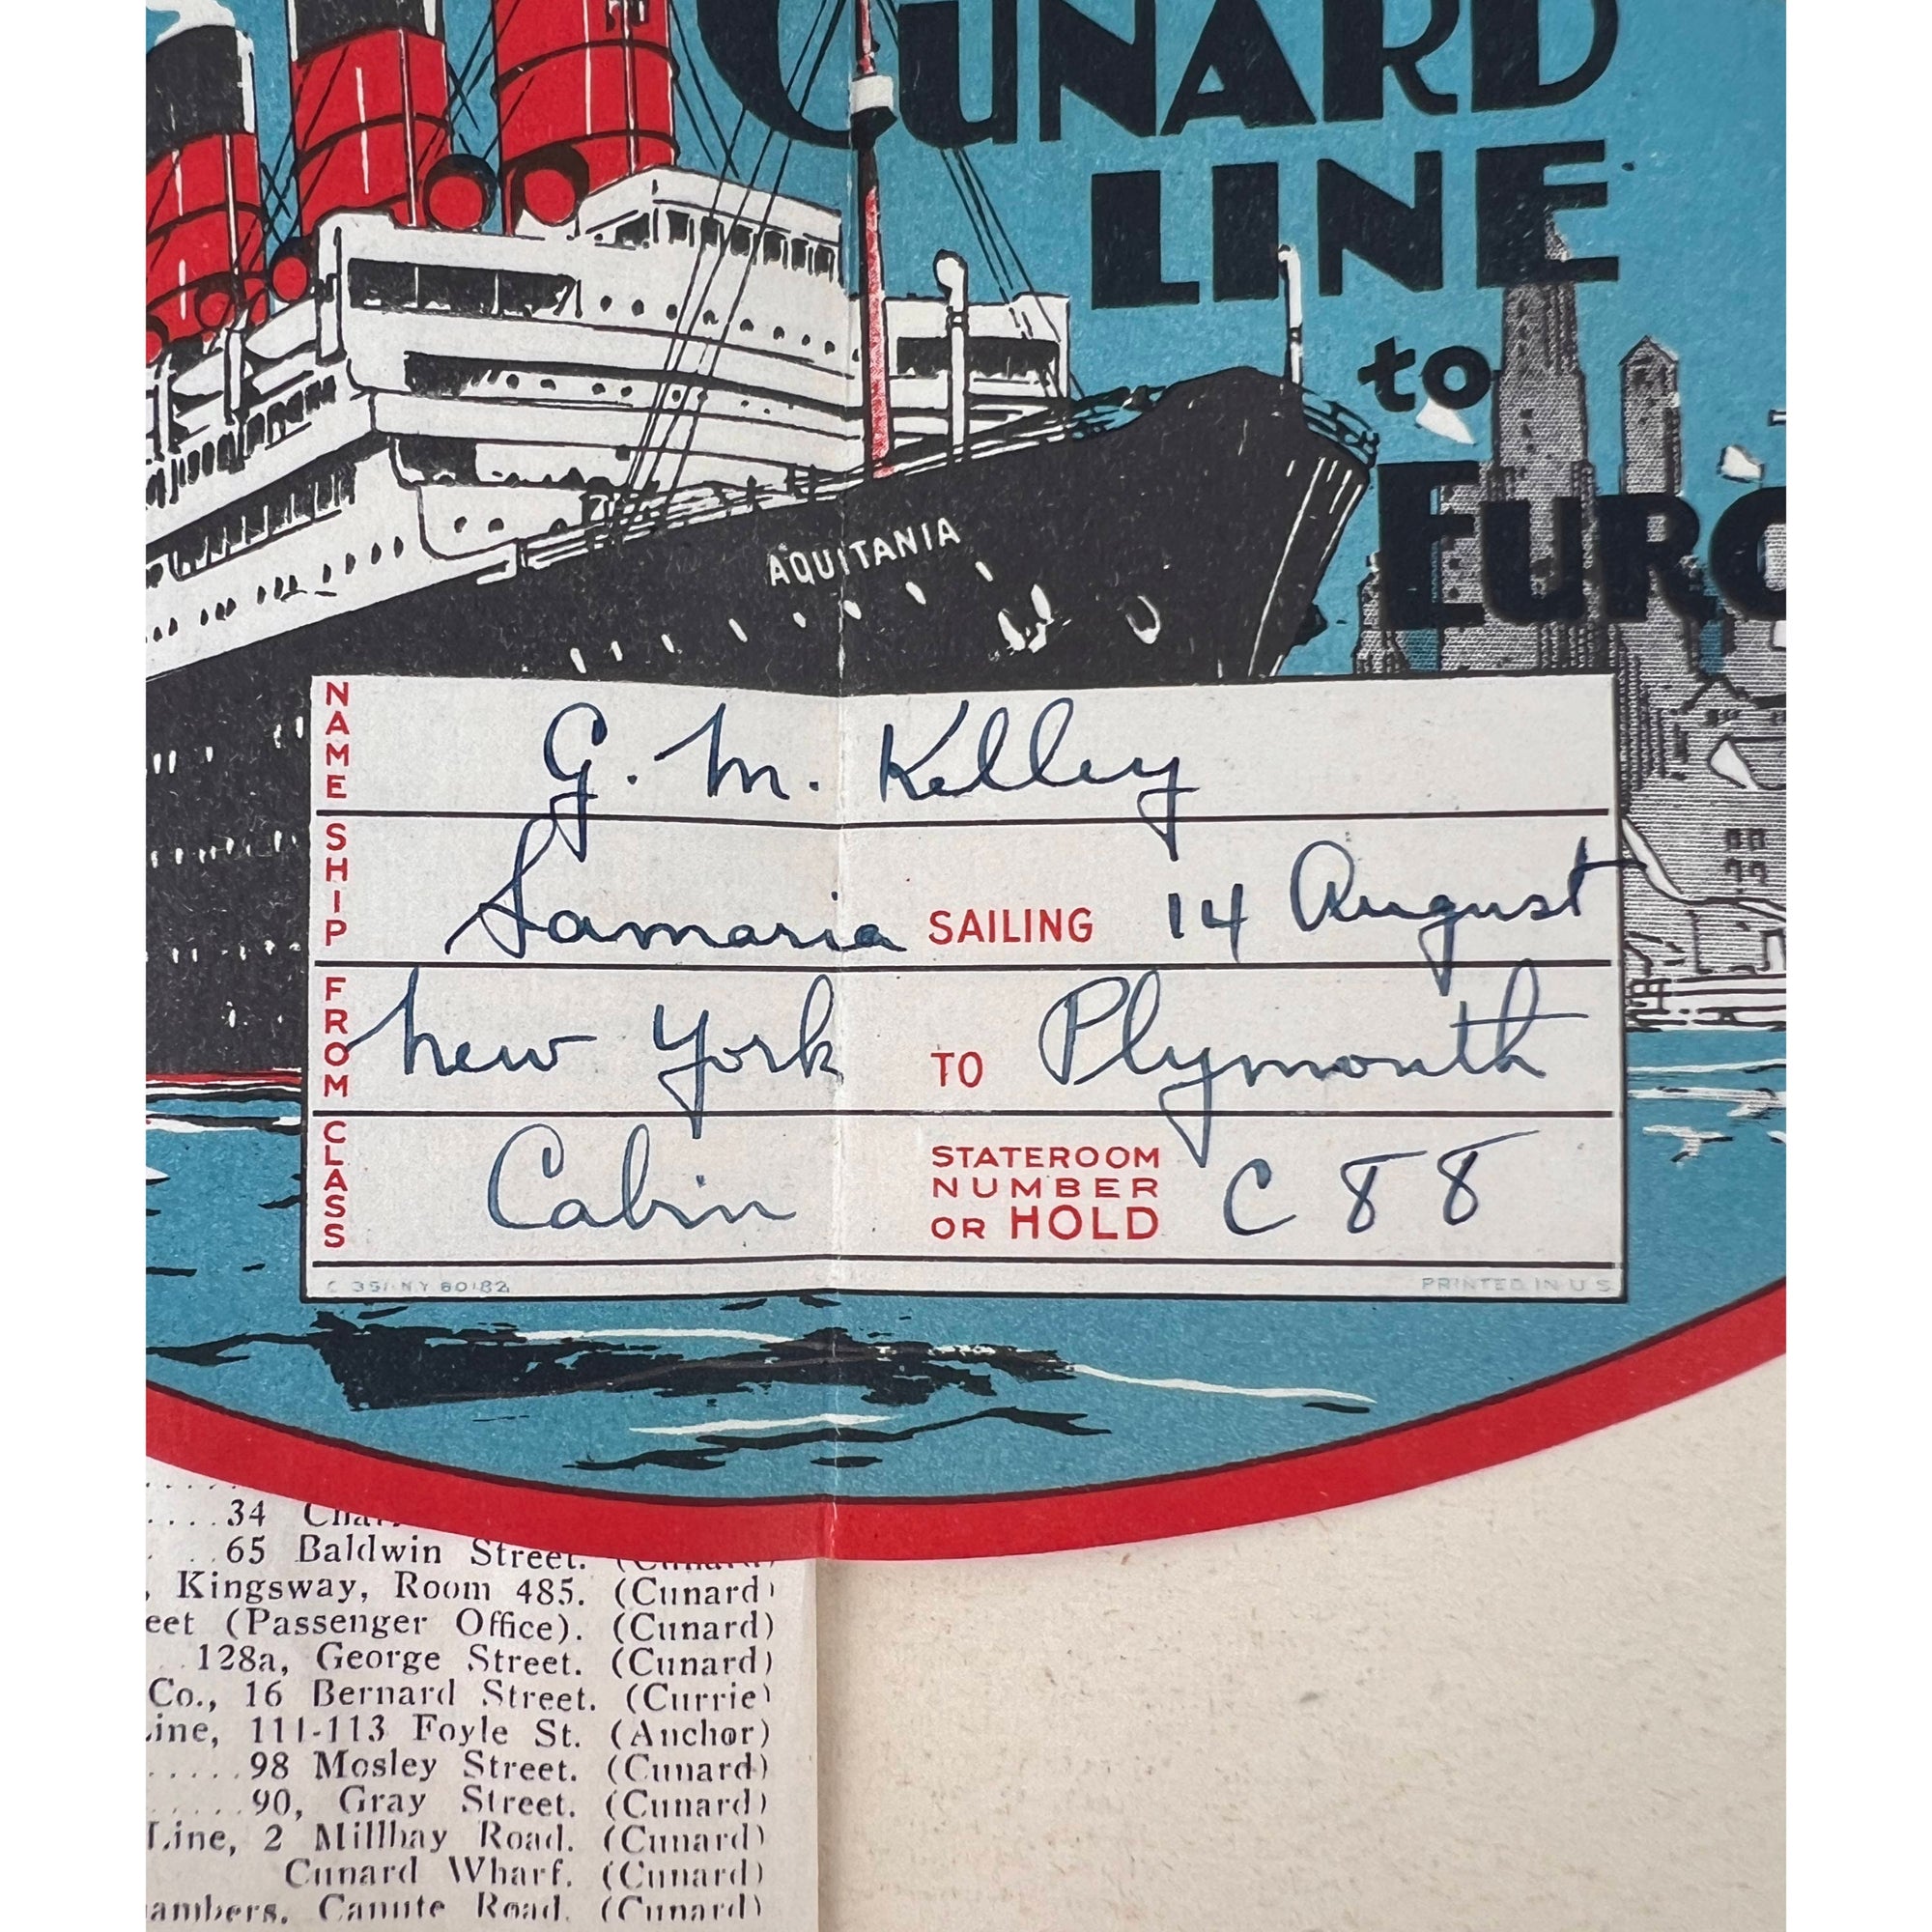 CUNARD
LINE
to
EURO
AQUITANIA
NAME G. M. Kelley
SHIP Samaria SAILING 14 August
FROM New York TO Plymouth
CLASS Cabin STATEROOM NUMBER OR HOLD C 88
C 351 N.Y 60182 PRINTED IN U S
....34
.. ..65 Baldwin Street. (Cunard)
, Kingsway, Room 485. (Cunard)
eet (Passenger Office). (Cunard)
128a, George Street. (Cunard)
Co., 16 Bernard Street. (Currie)
ine, 111-113 Foyle St. (Anchor)
.....98 Mosley Street. (Cunard)
.....90, Gray Street. (Cunard)
Line, 2 Millbay Road. (Cunard)
Cunard Wharf. (Cunard)
ambers, Canute Road. (Cunard)